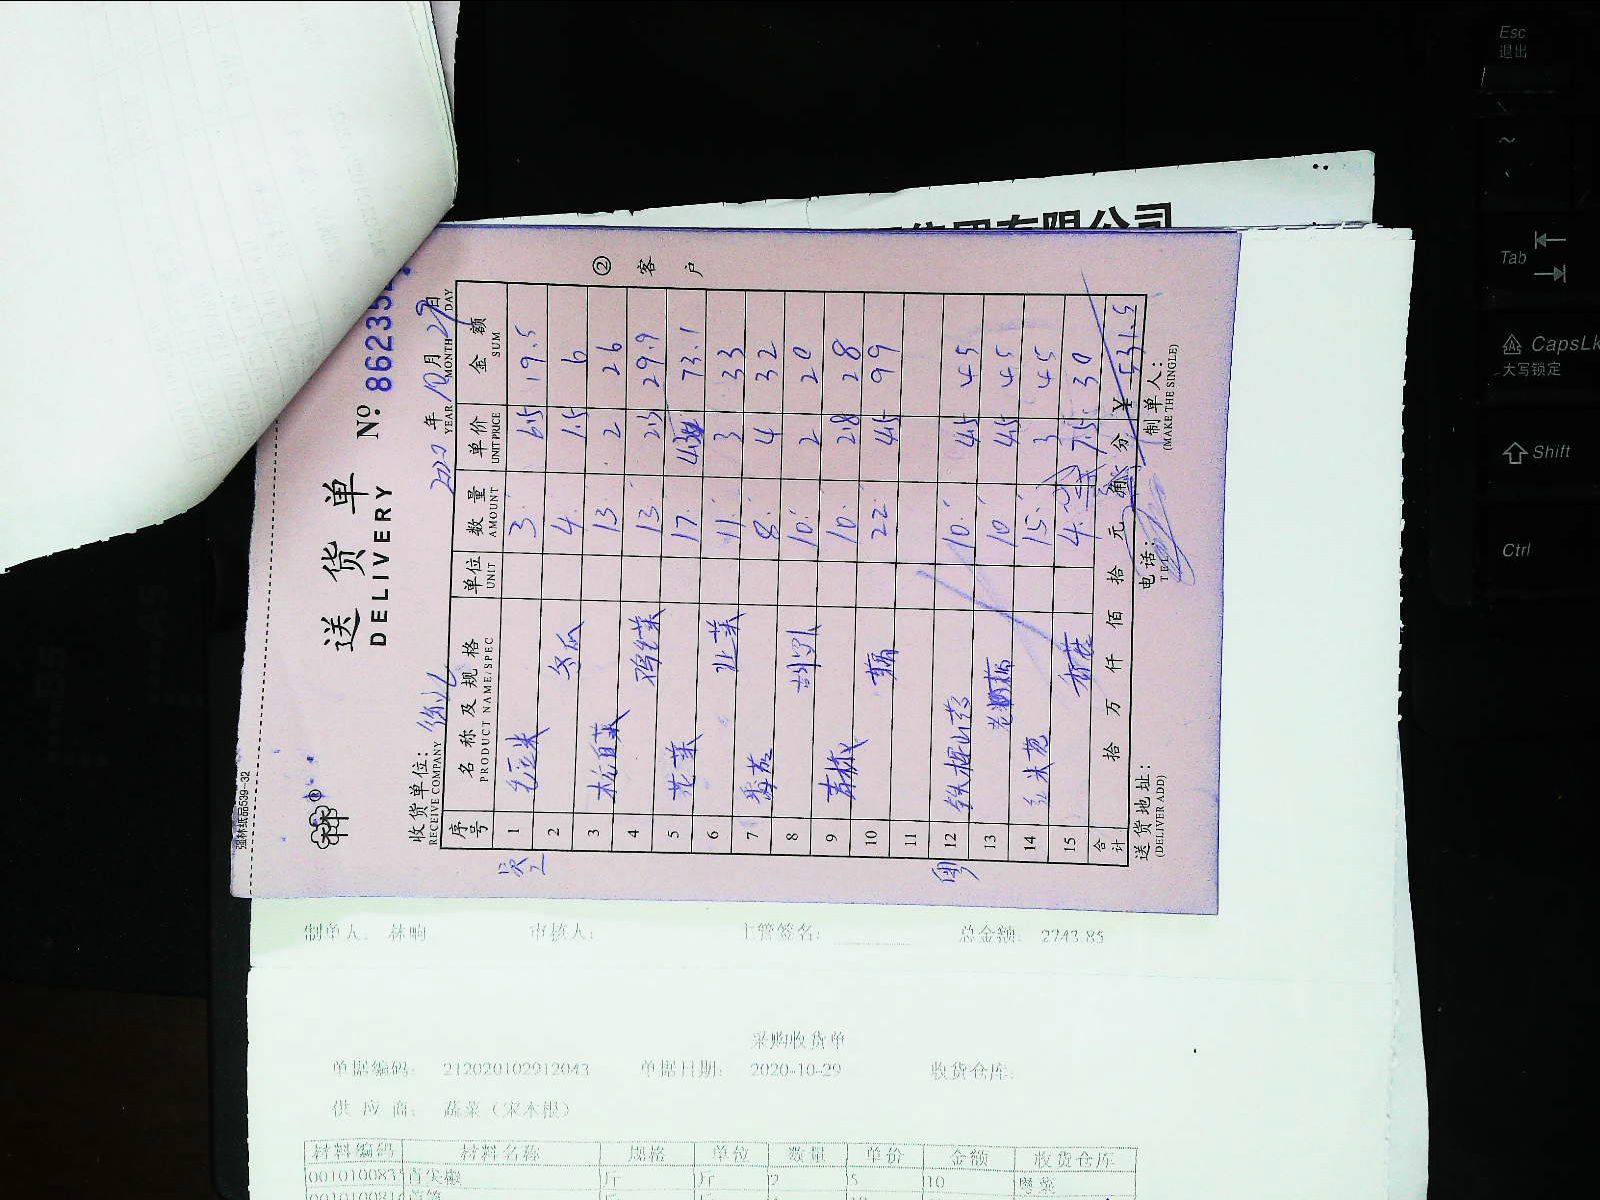 强林纸品539-32
林®
送货单
DELIVERY
№ 862352
收货单位:
RECEIVE COMPANY
2020 年 10 月 29 日
YEAR MONTH DAY
序号 名称及规格 单位 数量 单价 金额
PRODUCT NAME/SPEC UNIT AMOUNT UNIT PRICE SUM
1 玉米 3 6.5 19.5
2 冬瓜 4 1.5 6
3 13 2 26
4 13 2.3 29.9
5 花菜 17 4.3 73.1
6 11 3 33
7 番茄 8 4 32
8 胡罗卜 10 2 20
9 青椒 10 2.8 28
10 22 4.5 99
11
12 铁棍山药 10 4.5 45
13 10 4.5 45
14 15 3 45
15 4 7.5 30
合计 拾 万 仟 佰 拾 元 角 分 ¥ 531.5
送货地址:
(DELIVER ADD)
电话:
TEL
制单人:
(MAKE THE SINGLE)
② 客户
集团有限公司
制单人: 林响 审核人: 主管签名: 总金额: 2743.85
采购收货单
单据编码: 212020102912043 单据日期: 2020-10-29 收货仓库:
供应商: 蔬菜(宋本根)
材料编码 材料名称 规格 单位 数量 单价 金额 收货仓库
001010083 青尖椒 斤 斤 2 5 10 粤菜
Esc
退出
~
Tab
CapsLk
大写锁定
Shift
Ctrl